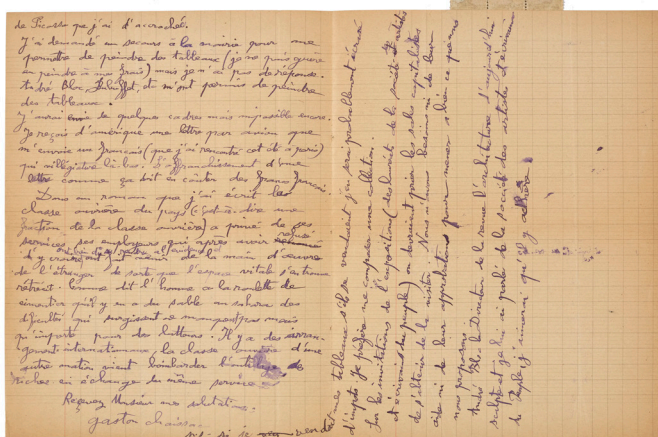 de Picasso que j'ai d'accroché.
J'ai demandé un secours à la mairie pour me
permettre de peindre des tableaux (je ne puis guère
en peindre à mes frais) mais je n'ai pas de réponse.
André Bloc, Dubuffet, etc m'ont permis de peindre
des tableaux.
J'aurai envie de quelques cadres mais impossible encore.
Je reçois d'amérique une lettre par avion que
m'envoie un français (que j'ai rencontré cet été à paris)
qui villégiature là-bas. L'affranchissement d'une
lettre comme ça doit en coûter des francs français.
Dans un roman que j'ai écrit les
classe ouvrière du pays (c'est à dire une
fraction de la classe ouvrière) a privé de ses
services ses employeurs qui après avoir refusé
d'y croire
de la main d'œuvre
de l'étranger de sorte que l'espace vital s'en trouve
rétréci. Comme dit l'homme à la roulotte de
cimentier qu'il y a du sable au sahara des
difficultés qui surgissent ne manquent pas mais
qu'importe pour des lutteurs. Il y a des arran-
gements internationaux, la classe ouvrière d'une
autre nation vient bombarder l'outillage des
riches en échange du même service.
Recevez Monsieur mes salutations.
gaston Chaissac
mes tableaux s'ils se vendaient j'en serai probablement écrasé
d'impôts. Je préfère me composer une collection.
Sur les invitations de l'exposition (des beaux arts de la société d'artistes
et écrivains du peuple) on devraient prier les sales capitalistes
de s'abstenir de la visiter. Nous n'avons besoin ni de leur
ni de leur approbation pour mener à bien ce que nous
nous proposons.
André Bloc le Directeur de la revue l'architecture d'aujourd'hui
sculpte et je lui ai parlé de la société des artistes et écrivains
du Peuple, j'aimerai qu'il y adhère